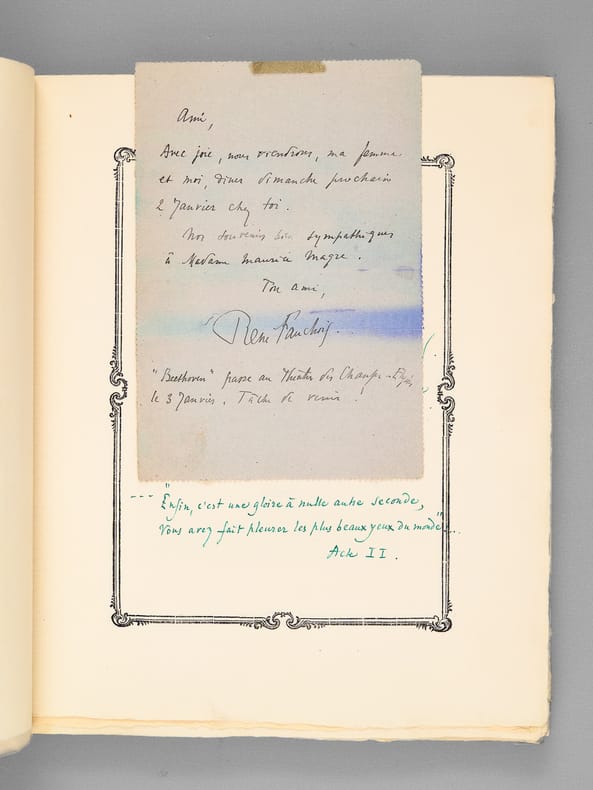 Ami,
Avec joie, nous viendrons, ma femme
et moi, dîner dimanche prochain
2 Janvier chez toi.
Nos souvenirs bien sympathiques
à Madame Maurice Magre.
Ton ami,
René Fauchois.
"Beethoven" passe au Théâtre des Champs-Elysées
le 3 Janvier. Tâche de venir !
--- "Enfin, c'est une gloire à nulle autre seconde,
Vous avez fait pleurer les plus beaux yeux du monde"...
Acte II.